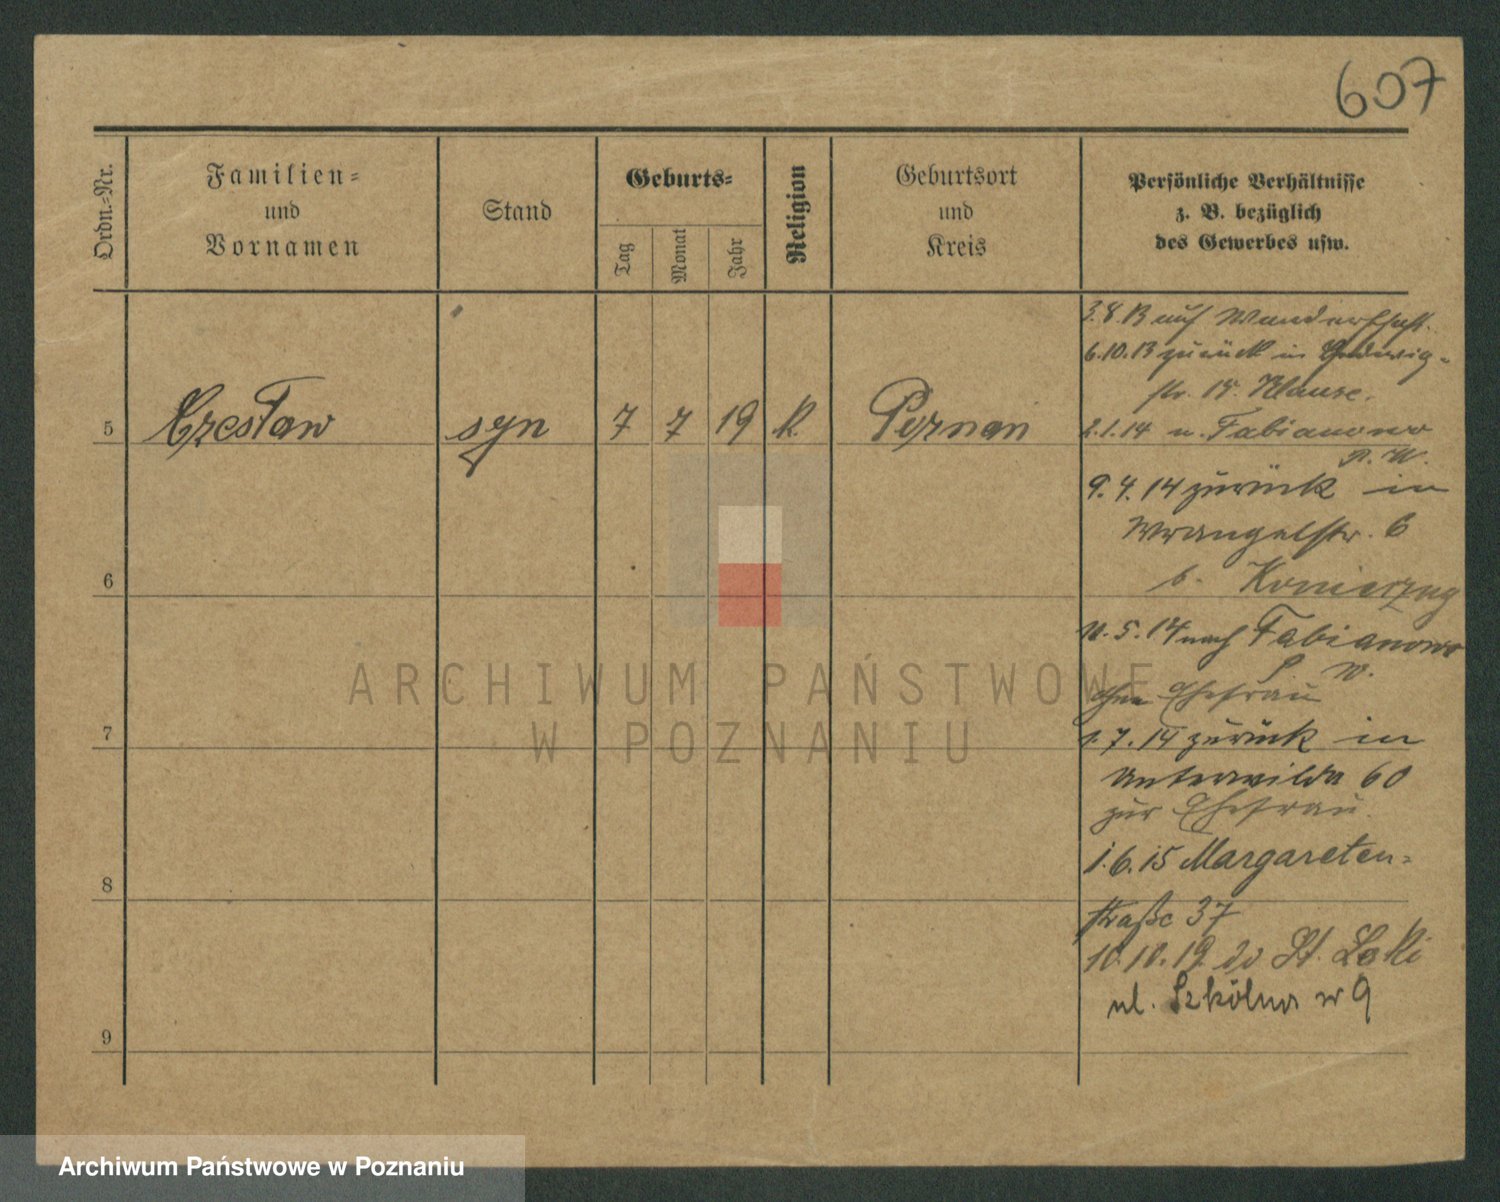 607
Ordn.-Nr.
Familien-
und
Vornamen
Stand
Geburts-
Tag
Monat
Jahr
Religion
Geburtsort
und
Kreis
Persönliche Verhältnisse
z. B. bezüglich
des Gewerbes usw.
3.8.13 auf Wanderschaft.
6.10.13 zurück in Ludwig-
str. 15. Klause.
5 Czesław syn 7 7 19 k. Poznań
2.1.14 n. Fabianowo
P. W.
9.4.14 zurück in
Wrangelstr. 6
6
b.
5.14 nach Fabianowo
P. W.
ohne Ehefrau
7
1.7.14 zurück in
Unterwilda 60
zur Ehefrau.
1.6.15 Margareten-
8
straße 37
10.10.19 do St. Łeki
ul. Szkólna nr 9
9
ARCHIWUM PAŃSTWOWE
W POZNANIU
Archiwum Państwowe w Poznaniu